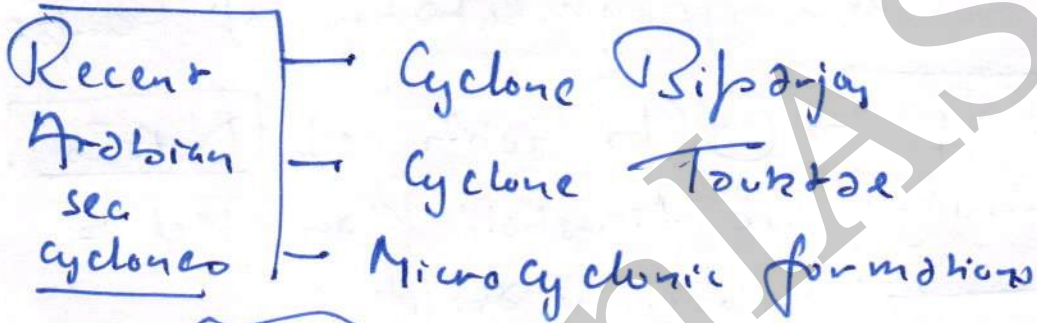 Recent Arabian sea cyclones
Cyclone Biparjoy
Cyclone Tauktae
Micro cyclonic formations
IAS